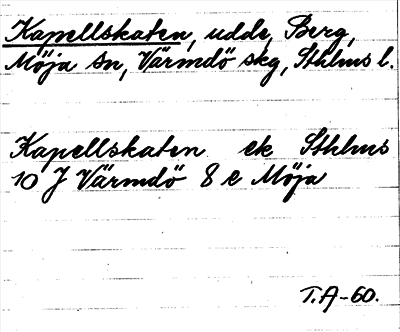 Kapellskaten, udde, Berg,
Möja sn, Värmdö skg, Sthlms l.
Kapellskaten ek Sthlms
10 J Värmdö 8 e Möja
T.A-60.